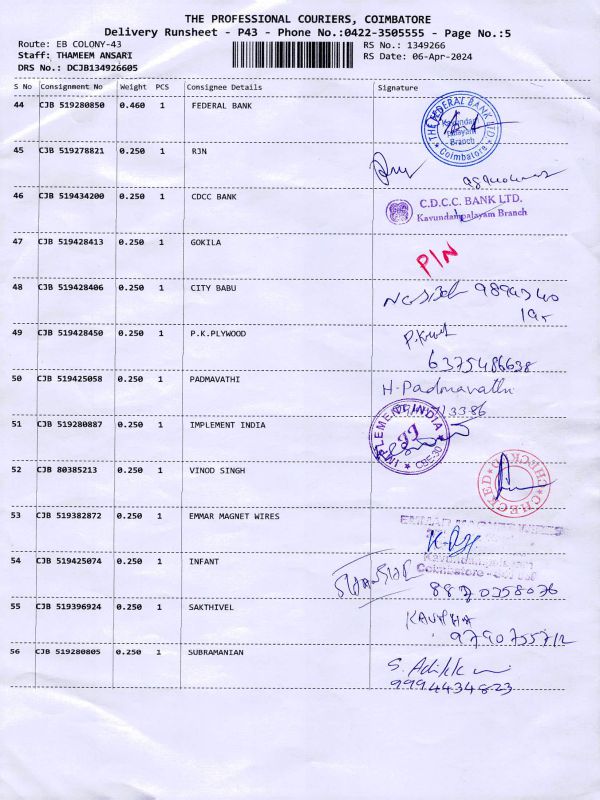 THE PROFESSIONAL COURIERS, COIMBATORE
Delivery Runsheet - P43 - Phone No.:0422-3505555 - Page No.:5
Route: EB COLONY-43 RS No.: 1349266
Staff: THAMEEM ANSARI RS Date: 06-Apr-2024
DRS No.: DCJB134926605
S No Consignment No Weight PCS Consignee Details Signature
44 CJB 519280850 0.460 1 FEDERAL BANK
THE FEDERAL BANK LTD.
Kavundam
palayam
Branch
Coimbatore
45 CJB 519278821 0.250 1 RJN
46 CJB 519434200 0.250 1 CDCC BANK
C.D.C.C. BANK LTD.
Kavundampalayam Branch
47 CJB 519428413 0.250 1 GOKILA
P/N
48 CJB 519428406 0.250 1 CITY BABU
49 CJB 519428450 0.250 1 P.K.PLYWOOD
6375486638
50 CJB 519425058 0.250 1 PADMAVATHI
H. Padmavathi
51 CJB 519280887 0.250 1 IMPLEMENT INDIA
IMPLEMENT INDIA
CBE-30
52 CJB 80385213 0.250 1 VINOD SINGH
CHECKED CHECKED
53 CJB 519382872 0.250 1 EMMAR MAGNET WIRES
EMMAR MAGNET WIRES
54 CJB 519425074 0.250 1 INFANT
Coimbatore
8870358076
55 CJB 519396924 0.250 1 SAKTHIVEL
9790755712
56 CJB 519280805 0.250 1 SUBRAMANIAN
9994434823